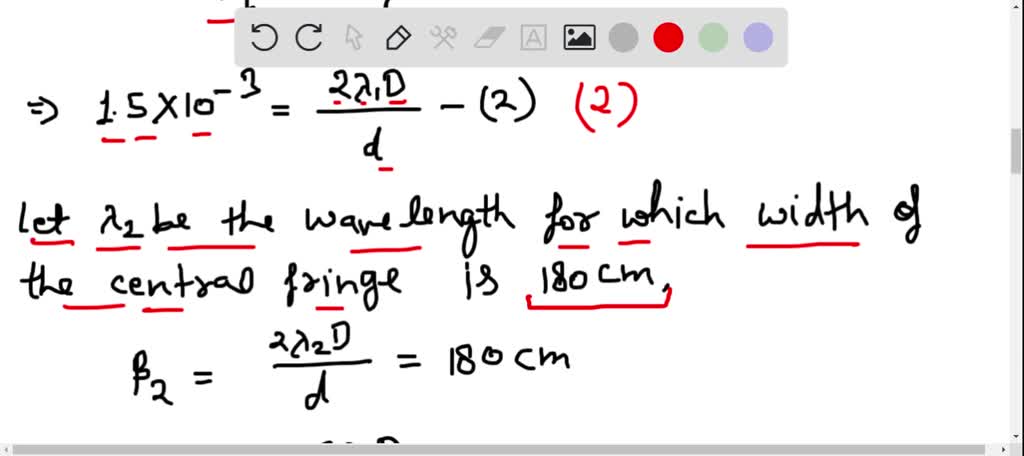 ⇒ 1.5×10⁻³ = 2λ₁D/d - (2) (2)
Let λ₂ be the wavelength for which width of
the central fringe is 180 cm,
β₂ = 2λ₂D/d = 180 cm